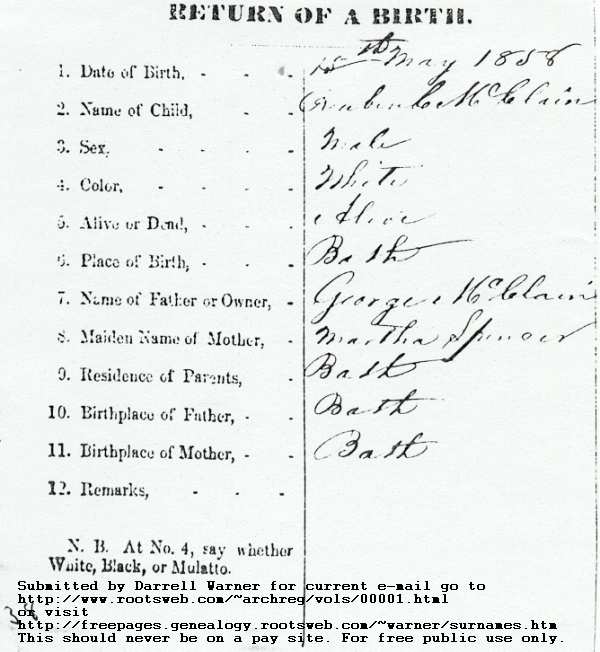 RETURN OF A BIRTH.
1. Date of Birth, - - - 15th May 1858
2. Name of Child, - - McClain
3. Sex, - - - - Male
4. Color, - - - - White
5. Alive or Dead, - - - Alive
6. Place of Birth, - - - Bath
7. Name of Father or Owner, - George McClain
8. Maiden Name of Mother, - Martha Spencer
9. Residence of Parents, - Bath
10. Birthplace of Father, - - Bath
11. Birthplace of Mother, - - Bath
12. Remarks, - - -
N. B. At No. 4, say whether
White, Black, or Mulatto.
Submitted by Darrell Warner for current e-mail go to
http://www.rootsweb.com/~archreg/vols/00001.html
or visit
http://freepages.genealogy.rootsweb.com/~warner/surnames.htm
This should never be on a pay site. For free public use only.